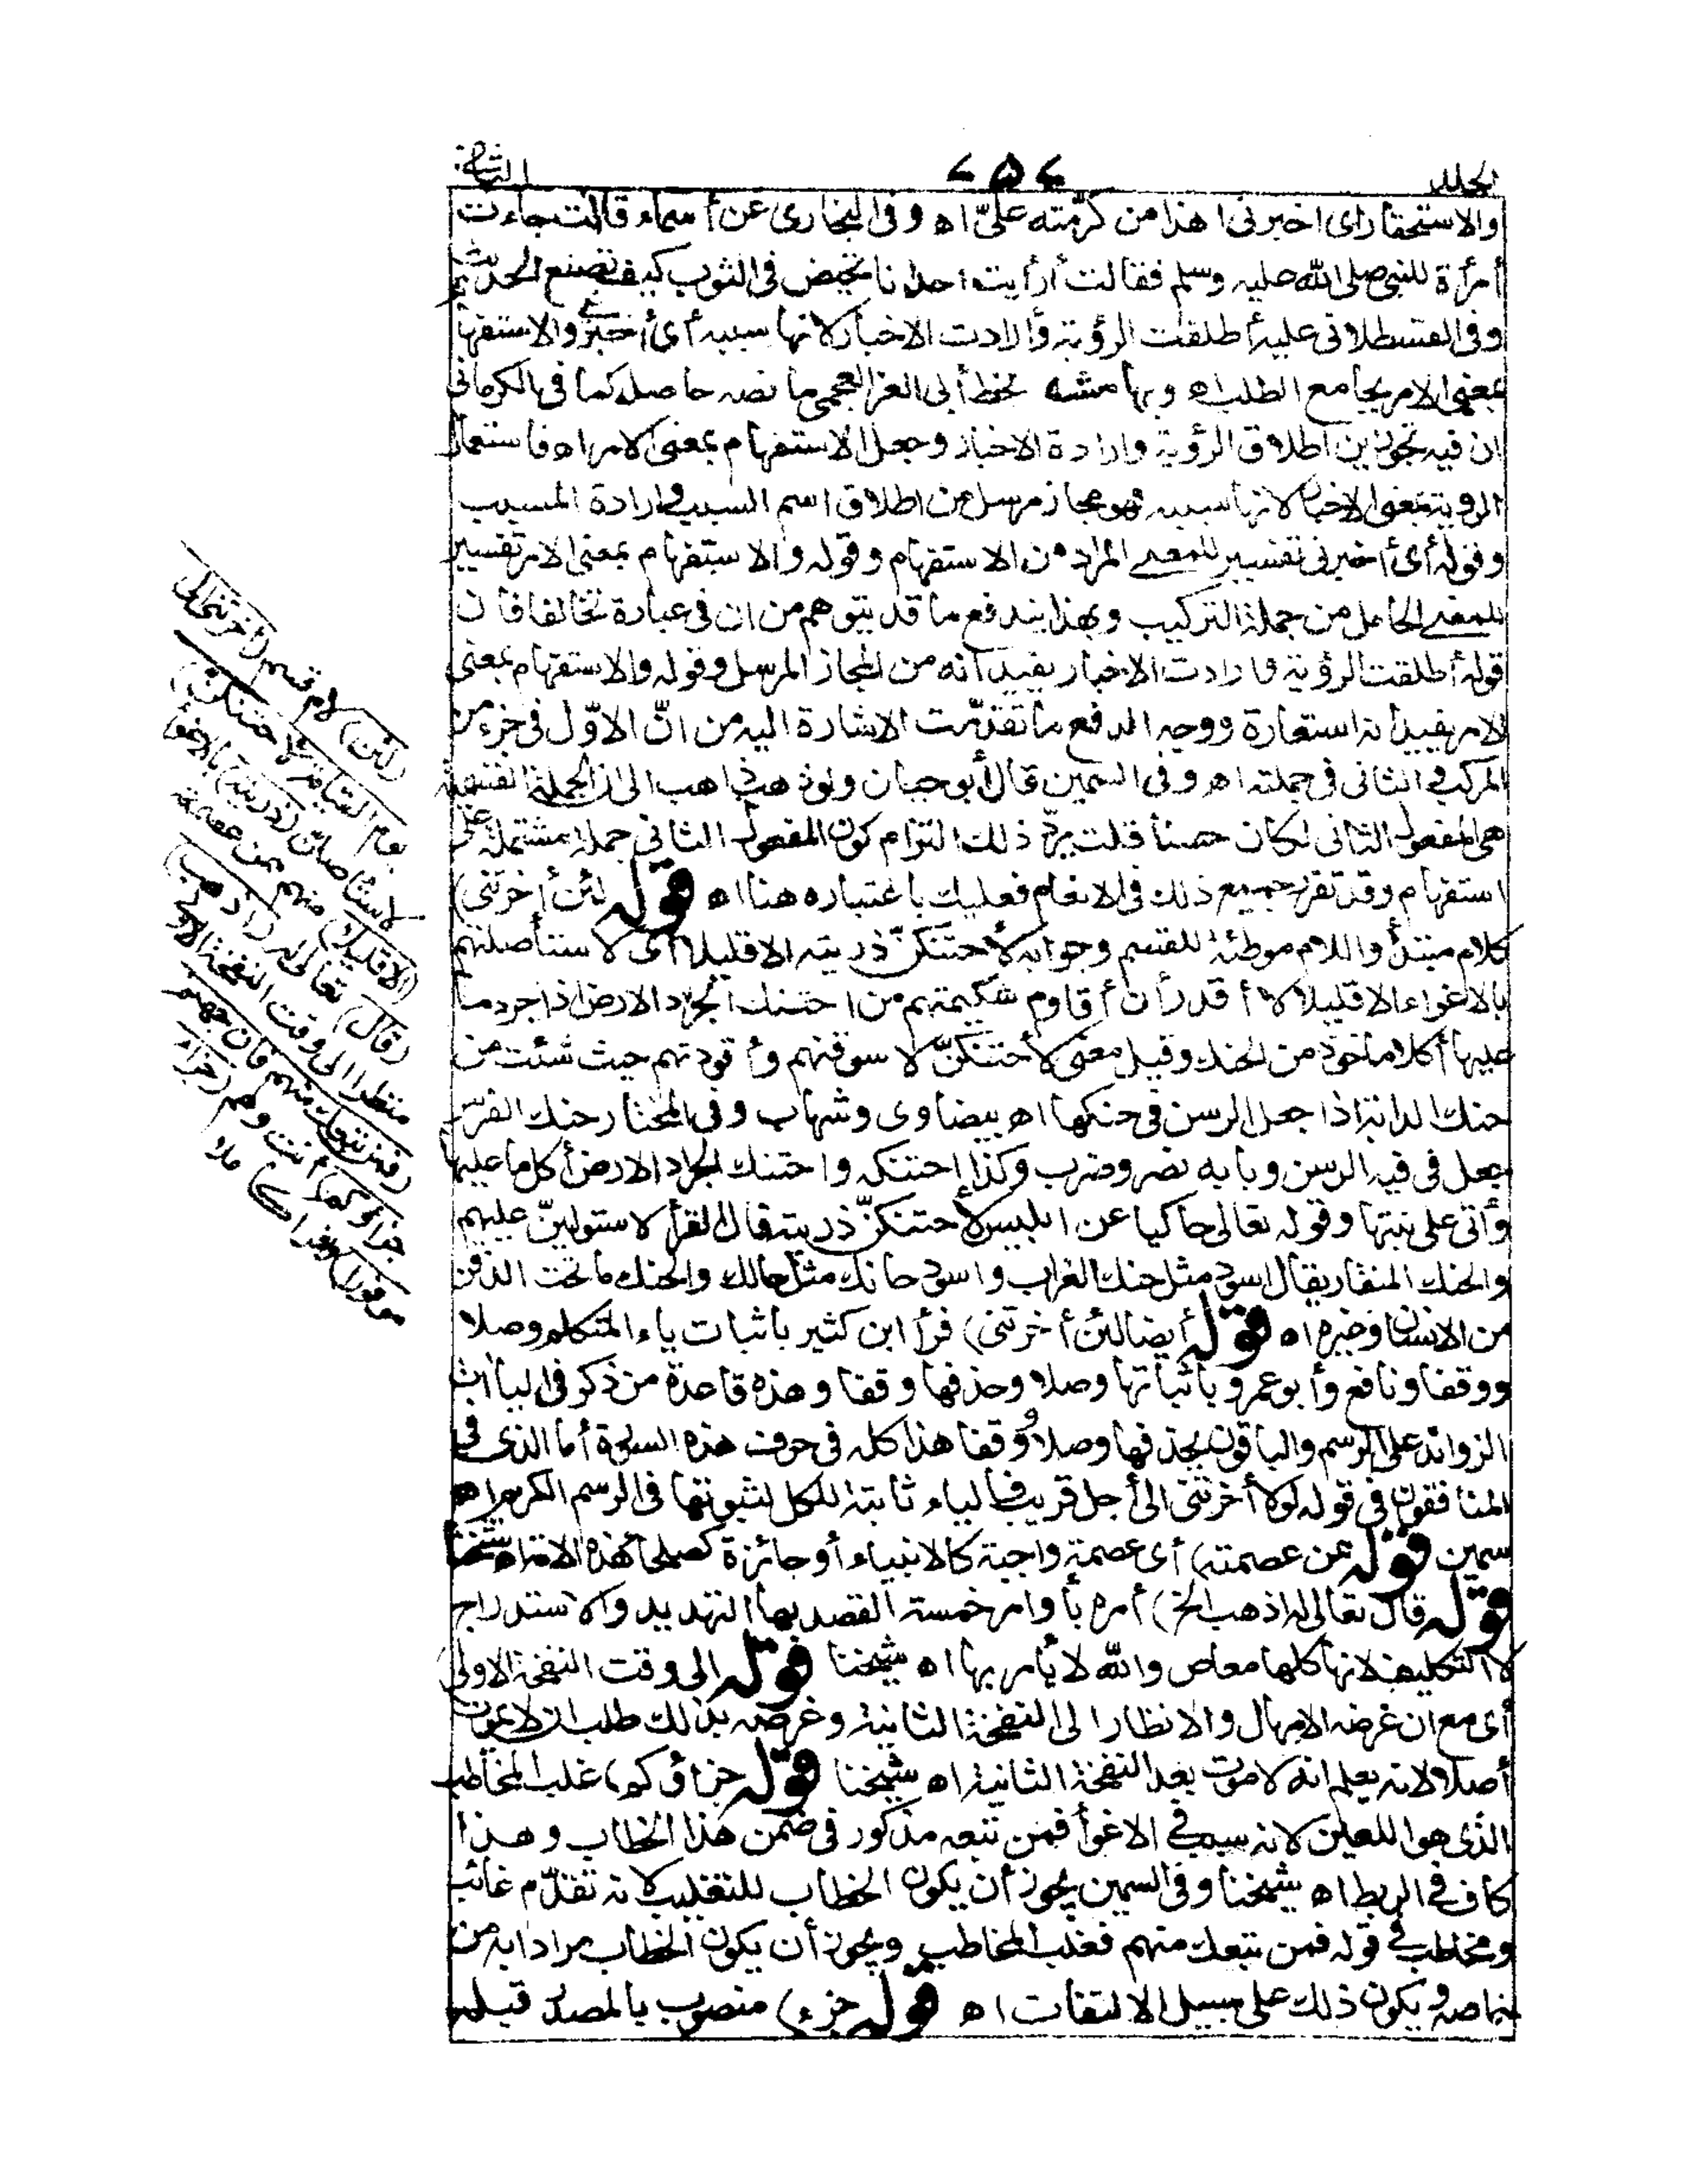 المجلد ٧٥٧ الثاني
والاستحقار اى اخبرنى اهذا من كرّمته علىّ اه وفى البخارى عن أسماء قالت جاءت
أمرأة للنبى صلى الله عليه وسلم فقالت أرأيت احدانا تحيض فى الثوب كيف تصنع الحديث
وفى القسطلانى عليه أطلقت الرؤية وأرادت الاخبار لانها سببه أى أخبرنى والاستفهام
بمعنى الامر بجامع الطلب اه وبهامشه بخط أبى العز العجمى ما نصه حاصله كما فى الكرمانى
ان فيه تجوزين اطلاق الرؤية وارادة الاخبار وجعل الاستفهام بمعنى الامر اه فاستعمال
الرؤية بمعنى الاخبار لانها سببه فهو مجاز مرسل من اطلاق اسم السبب وارادة المسبب
وقوله أى أخبرنى تفسير للمعنى المراد من الاستفهام وقوله والاستفهام بمعنى الامر تفسير
للمعنى الحاصل من جملة التركيب وبهذا يندفع ما قد يتوهم من ان فى عبارة تخالفا فان
قوله أطلقت الرؤية وارادت الاخبار يفيد أنه من المجاز المرسل وقوله والاستفهام بمعنى
الامر يفيد انه استعارة ووجه الدفع ما تقدّمت الاشارة اليه من انّ الاوّل فى جزء من
المركب والثانى فى جملته اه وفى السمين قال أبو حيان ولو ذهب ذاهب الى ان الجملة القسمية
هى المفعول الثانى لكان حسنا قلت يردّ ذلك التزام كون المفعول الثانى جملة مشتملة على
استفهام وقد تقرر جميع ذلك فى الانعام فعليك باعتباره هنا اه قوله لئن أخرتنى)
كلام مبتدأ واللام موطئة للقسم وجوابه لأحتنكنّ ذريته الا قليلا أى لاستأصلنهم
بالاغواء الا قليلا لا أقدر أن أقاوم شكيمتهم من احتنك الجراد الارض اذا جرد ما
عليها أكلا مأخوذ من الحنك وقيل معنى لأحتنكنّ لاسوقنهم وأقودنهم حيث شئت من
حنك الدابة اذا جعل الرسن فى حنكها اه بيضاوى وشهاب وفى المختار حنك الفرس
جعل فى فيه الرسن وبابه نصر وضرب وكذا إحتنكه واحتنك الجراد الارض أكل ما عليها
وأتى على نبتها وقوله تعالى حاكيا عن ابليس لأحتنكنّ ذريته قال الفرأ لاستولينّ عليهم
والحنك المنقار يقال اسود مثل حنك الغراب واسود حانك مثل حالك والحنك ما تحت الذقن
من الانسان وغيره اه قوله أيضا لئن أخرتنى) قرأ ابن كثير باثبات ياء المتكلم وصلا
ووقفا ونافع وأبو عمرو باثباتها وصلا وحذفها وقفا وهذه قاعدة من ذكر فى الياآت
الزوائد على الرسم والباقون بحذفها وصلا ووقفا هذا كله فى حرف هذه السورة أما الذى فى
المنافقون فى قوله لولا أخرتنى الى أجل قريب فالياء ثابتة للكل لثبوتها فى الرسم الكريم اه
سمين قوله عن عصمته) أى عصمة واجبة كالانبياء أو جائزة كصلحاء هذه الامة اه شيخنا
قوله قال تعالى له اذهب الخ) أمره بأوامر خمسة القصد بها التهديد والاستدراج
لا التكليف لانها كلها معاص والله لا يأمر بها اه شيخنا قوله الى وقت النفخة الاولى)
أى مع ان غرضه الامهال والانظار الى النفخة الثانية وغرضه بذلك طلب ان لا يموت
أصلا لانه يعلم انه لا موت بعد النفخة الثانية اه شيخنا قوله جزاؤكم) غلب المخاطب
الذى هو اللعين لانه سبب فى الاغوأ فمن تبعه مذكور فى ضمن هذا الخطاب وهذا
كاف فى الربط اه شيخنا وفى السمين يجوز أن يكون الخطاب للتغليب لانه تقدّم غائب
ومخاطب فى قوله فمن تبعك منهم فغلب المخاطب ويجوز أن يكون الخطاب مرادا به من
خاصه ويكون ذلك على سبيل الالتفات اه قوله جزاء) منصوب بالمصدر قبله
(لئن) لام قسم (اخرتن الى
يوم القيامة لأحتنكن)
لاستأصلن (ذريته) بالاغواء
(الا قليلا) منهم ممن عصمته
(قال) تعالى له (اذهب)
منظرا الى وقت النفخة الاولى
(فمن تبعك منهم فان جهنم
جزاؤكم) أنت وهم (جزاء
موفورا) وافرا كاملا